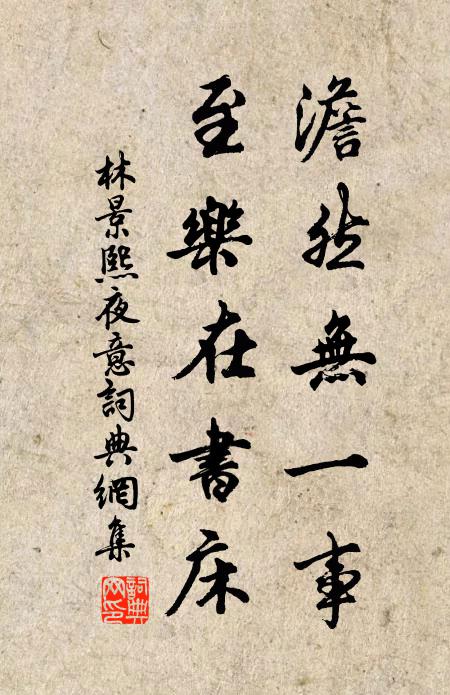 澹然無一事
至樂在書床
林景熙夜意詞典網集